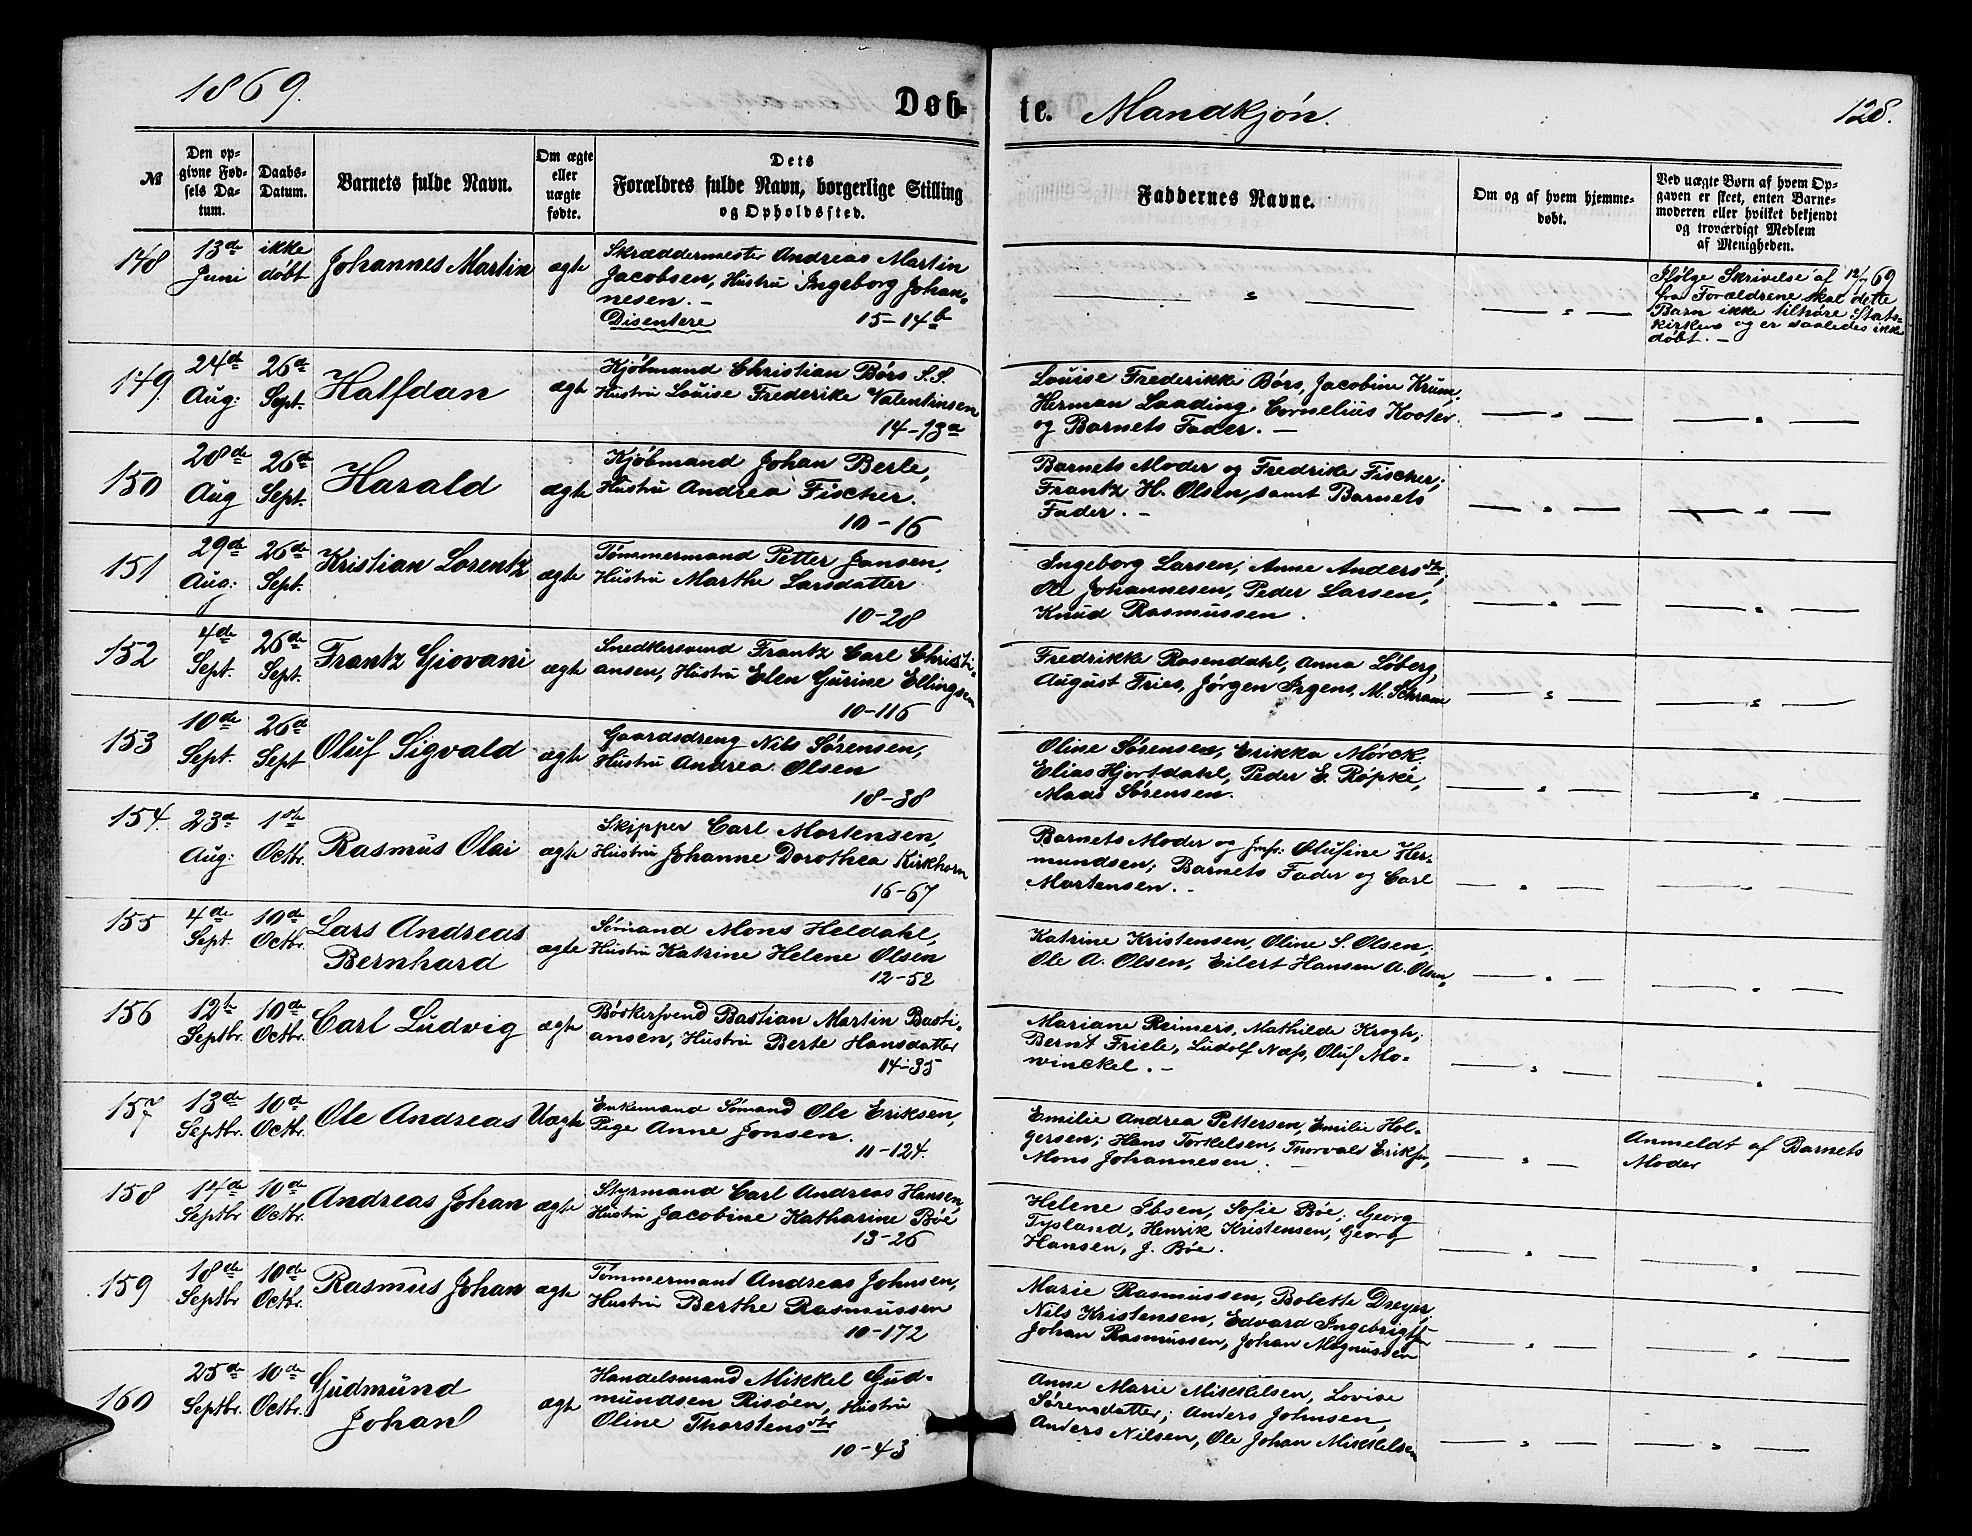 1869.
Døb-
te. Mandkjøn.
128.
№
Den op-
givne Fød-
sels Da-
tum.
Daabs-
Datum.
Barnets fulde Navn.
Om ægte
eller
uægte
fødte.
Dets
Forældres fulde Navn, borgerlige Stilling
og Opholdssted.
Faddernes Navne.
Om og af hvem hjemme-
døbt.
Ved uægte Børn af hvem Op-
gaven er skeet, enten Barne-
moderen eller hvilket bekjendt
og troværdigt Medlem
af Menigheden.
148
13de
Juni
ikke
døbt
Johannes Martin
ægte
Skræddermester Andreas Martin
Jacobsen, Hustru Ingeborg Johan-
nesen. –
Disentere 15–14b
Ifølge Skrivelse af 12/7 69
fra Forældrene skal dette
Barn ikke tilhøre Stats-
kirken og er saaledes ikke
døbt. –
149
24de
Aug:
26de
Sept.
Halfdan
ægte
Kjøbmand Christian Børs S.S.
Hustru Louise Frederike Valentinsen
14–13a
Louise Frederikke Børs, Jacobine Krum,
Herman Laading, Cornelius Kooter
og Barnets Fader. –
150
28de
Aug
26de
Sept.
Harald
ægte
Kjøbmand Johan Berle,
Hustru Andrea Fischer.
10–16
Barnets Moder og Fredrike Fischer;
Frantz H. Olsen, samt Barnets
Fader. –
151
29de
Aug:
26de
Sept.
Kristian Lorentz
ægte
Tømmermand Petter Jansen,
Hustru Marthe Larsdatter
10–28
Ingeborg Larsen, Anne Andersdtr;
Ole Johannesen, Peder Larsen,
Knud Rasmussen.
152
4de
Sept.
26de
Sept.
Frantz Giovani
ægte
Snedkersvend Frantz Carl Christi-
ansen, Hustru Elen Gurine Ellingsen
10–116
Fredrikke Rosendahl, Anna Løberg,
August Fries, Jørgen Irgens, M. Schram
153
10de
Sept.
26de
Sept
Oluf Sigvald
ægte
Gaardsdreng Nils Sørensen,
Hustru Andrea Olsen
18–38
Oline Sørensen, Erikka Mørck,
Elias Hjortdahl, Peder E. Røpke,
Maas Sørensen.
154.
23de
Aug:
1ste
Octbr.
Rasmus Olai
ægte
Skipper Carl Mortensen,
Hustru Johanne Dorothea Kirkhorn
16–67
Barnets Moder og Jmfr: Olufine Her-
mundsen; Barnets Fader og Carl
Mortensen. –
155
4de
Sept.
10de
Octbr.
Lars Andreas
Bernhard
ægte
Sømand Mons Heldahl,
Hustru Katrine Helene Olsen
12–52
Katrine Kristensen, Oline S. Olsen;
Ole A. Olsen, Eilert Hansen A. Olsen,
156
12te
Septbr.
10de
Octbr.
Carl Ludvig
ægte
Bødkersvend Bastian Martin Basti-
ansen, Hustru Berte Hansdatter
14–35
Mariane Reimers, Mathilde Krogh;
Bernt Friele, Ludolf Næss, Oluf Mo-
winckel. –
157
13de
Septbr.
10de
Octbr.
Ole Andreas
Uægte
Enkemand Sømand Ole Eriksen,
Pige Anne Jonsen.
11–124.
Emilie Andrea Pettersen, Emilie Hol-
gersen; Hans Torkelsen, Thorvald Eriksen,
Mons Johannesen. –
Anmeldt af Barnets
Moder
158
14de
Septbr
10de
Octbr.
Andreas Johan
ægte
Styrmand Carl Andreas Hansen,
Hustru Jacobine Katharine Bøe
13–26
Helene Ibsen, Sofie Bøe; Georg
Tysland, Henrik Kristensen, Georg
Hansen, J. Bøe.
159
18de
Septbr
10de
Octbr.
Rasmus Johan
ægte
Tømmermand Andreas Johnsen,
Hustru Berthe Rasmussen
10–172
Marie Rasmussen, Bolette Dreyer;
Nils Kristensen, Edvard Ingebrigtsen
Johan Rasmussen, Johan Magnussen
160
25de
Septbr.
10de
Octbr.
Gudmund
Johan
ægte
Handelsmand Mikkel Gud-
mundsen Risøen, Hustru
Oline Thorstensdtr
10–43
Anne Marie Mikkelsen, Lovise
Sørensdatter; Anders Johnsen,
Anders Nilsen, Ole Johan Mikkelsen